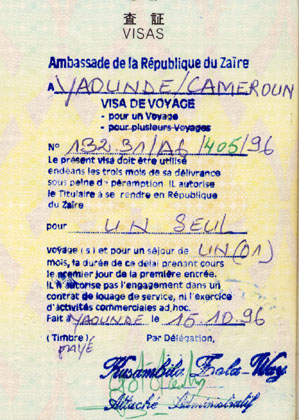 査証
VISAS
Ambassade de la République du Zaïre
A YAOUNDE/CAMEROUN
VISA DE VOYAGE
- pour un Voyage
- pour plusieurs Voyages
N° 132.31/A6/405/96
Le présent visa doit être utilisé
endéans les trois mois de sa délivrance
sous peine de péremption. IL autorise
le Titulaire à se rendre en République
du Zaïre
pour UN SEUL
voyage (s) et pour un séjour de UN (01)
mois, la durée de ce délai prenant cours
le premier jour de la première entrée.
IL n'autorise pas l'engagement dans un
contrat de louage de service, ni l'exercice
d'activités commerciales ad. hoc.
Fait à YAOUNDE le 15.10.96
(Timbre) Par Délégation,
PAYÉ
Attaché Administratif